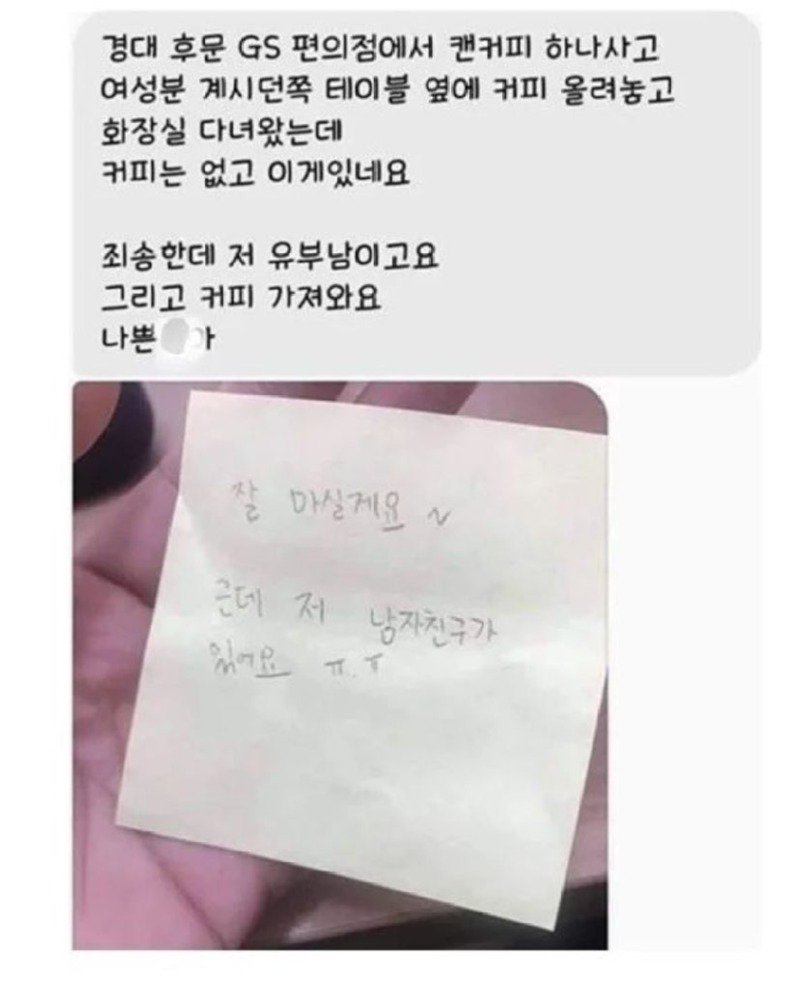 경대 후문 GS 편의점에서 캔커피 하나사고
여성분 계시던쪽 테이블 옆에 커피 올려놓고
화장실 다녀왔는데
커피는 없고 이게있네요
죄송한데 저 유부남이고요
그리고 커피 가져와요
나쁜
잘 마실게요 ~
근데 저 남자친구가
있어요 ㅠ.ㅠ